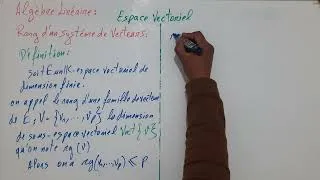 Algèbre Linéaire:
Espace Vectoriel
Rang d'un système de Vecteurs:
Définition:
Soit E un IK-espace vectoriel de
dimension finie.
on appel le rang d'une famille de vecteurs
de E; V={v₁,...,vp} la dimension
de sous-espace vectoriel Vect{V}
qu'on note rg(V)
Alors on a rg(v₁,...,vp) ≤ p